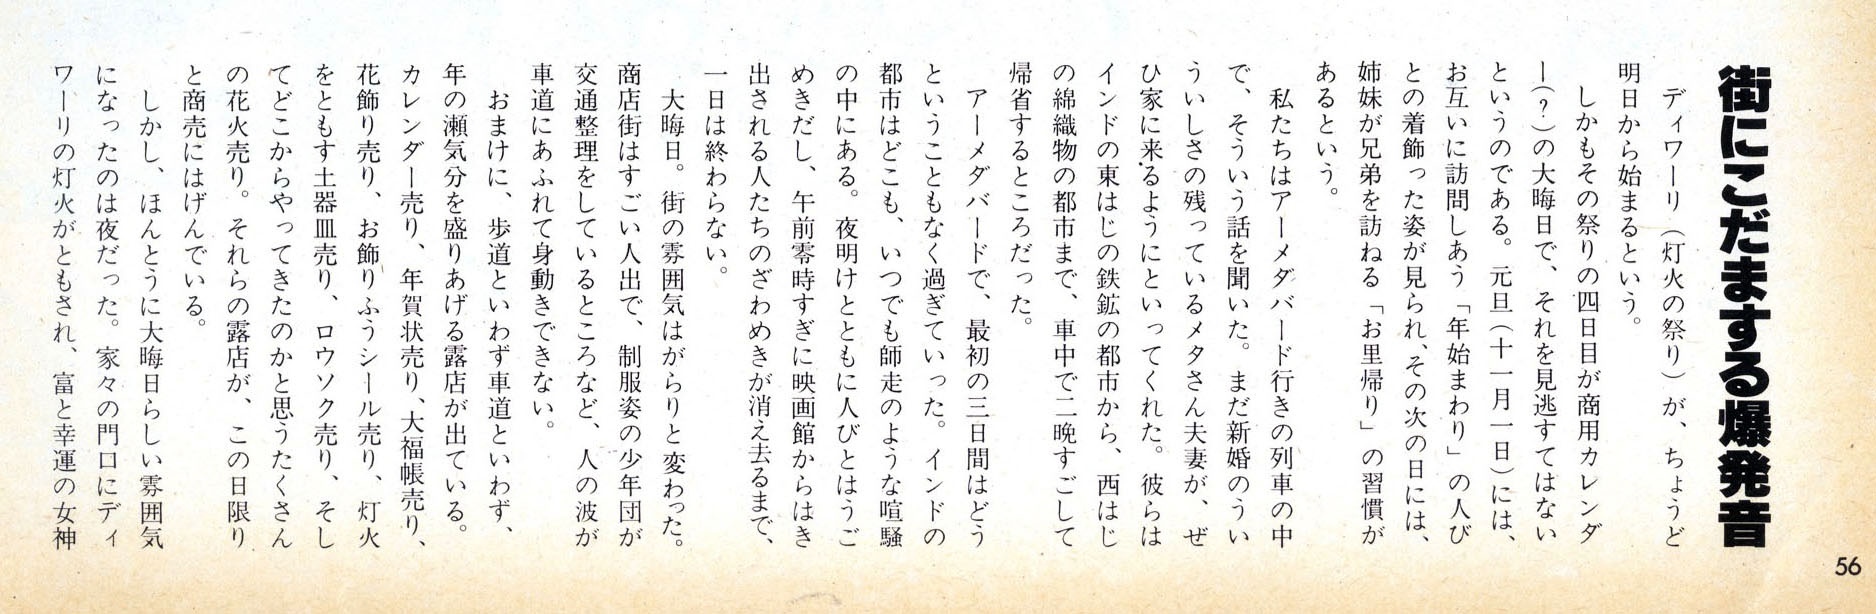 街にこだまする爆発音
ディワーリ(灯火の祭り)が、ちょうど
明日から始まるという。
しかもその祭りの四日目が商用カレンダ
ー(?)の大晦日で、それを見逃すてはない
というのである。元旦(十一月一日)には、
お互いに訪問しあう「年始まわり」の人び
との着飾った姿が見られ、その次の日には、
姉妹が兄弟を訪ねる「お里帰り」の習慣が
あるという。
私たちはアーメダバード行きの列車の中
で、そういう話を聞いた。まだ新婚のうい
ういしさの残っているメタさん夫妻が、ぜ
ひ家に来るようにといってくれた。彼らは
インドの東はじの鉄鉱の都市から、西はじ
の綿織物の都市まで、車中で二晩すごして
帰省するところだった。
アーメダバードで、最初の三日間はどう
ということもなく過ぎていった。インドの
都市はどこも、いつでも師走のような喧騒
の中にある。夜明けとともに人びとはうご
めきだし、午前零時すぎに映画館からはき
出される人たちのざわめきが消え去るまで、
一日は終わらない。
大晦日。街の雰囲気はがらりと変わった。
商店街はすごい人出で、制服姿の少年団が
交通整理をしているところなど、人の波が
車道にあふれて身動きできない。
おまけに、歩道といわず車道といわず、
年の瀬気分を盛りあげる露店が出ている。
カレンダー売り、年賀状売り、大福帳売り、
花飾り売り、お飾りふうシール売り、灯火
をともす土器皿売り、ロウソク売り、そし
てどこからやってきたのかと思うたくさん
の花火売り。それらの露店が、この日限り
と商売にはげんでいる。
しかし、ほんとうに大晦日らしい雰囲気
になったのは夜だった。家々の門口にディ
ワーリの灯火がともされ、富と幸運の女神
56